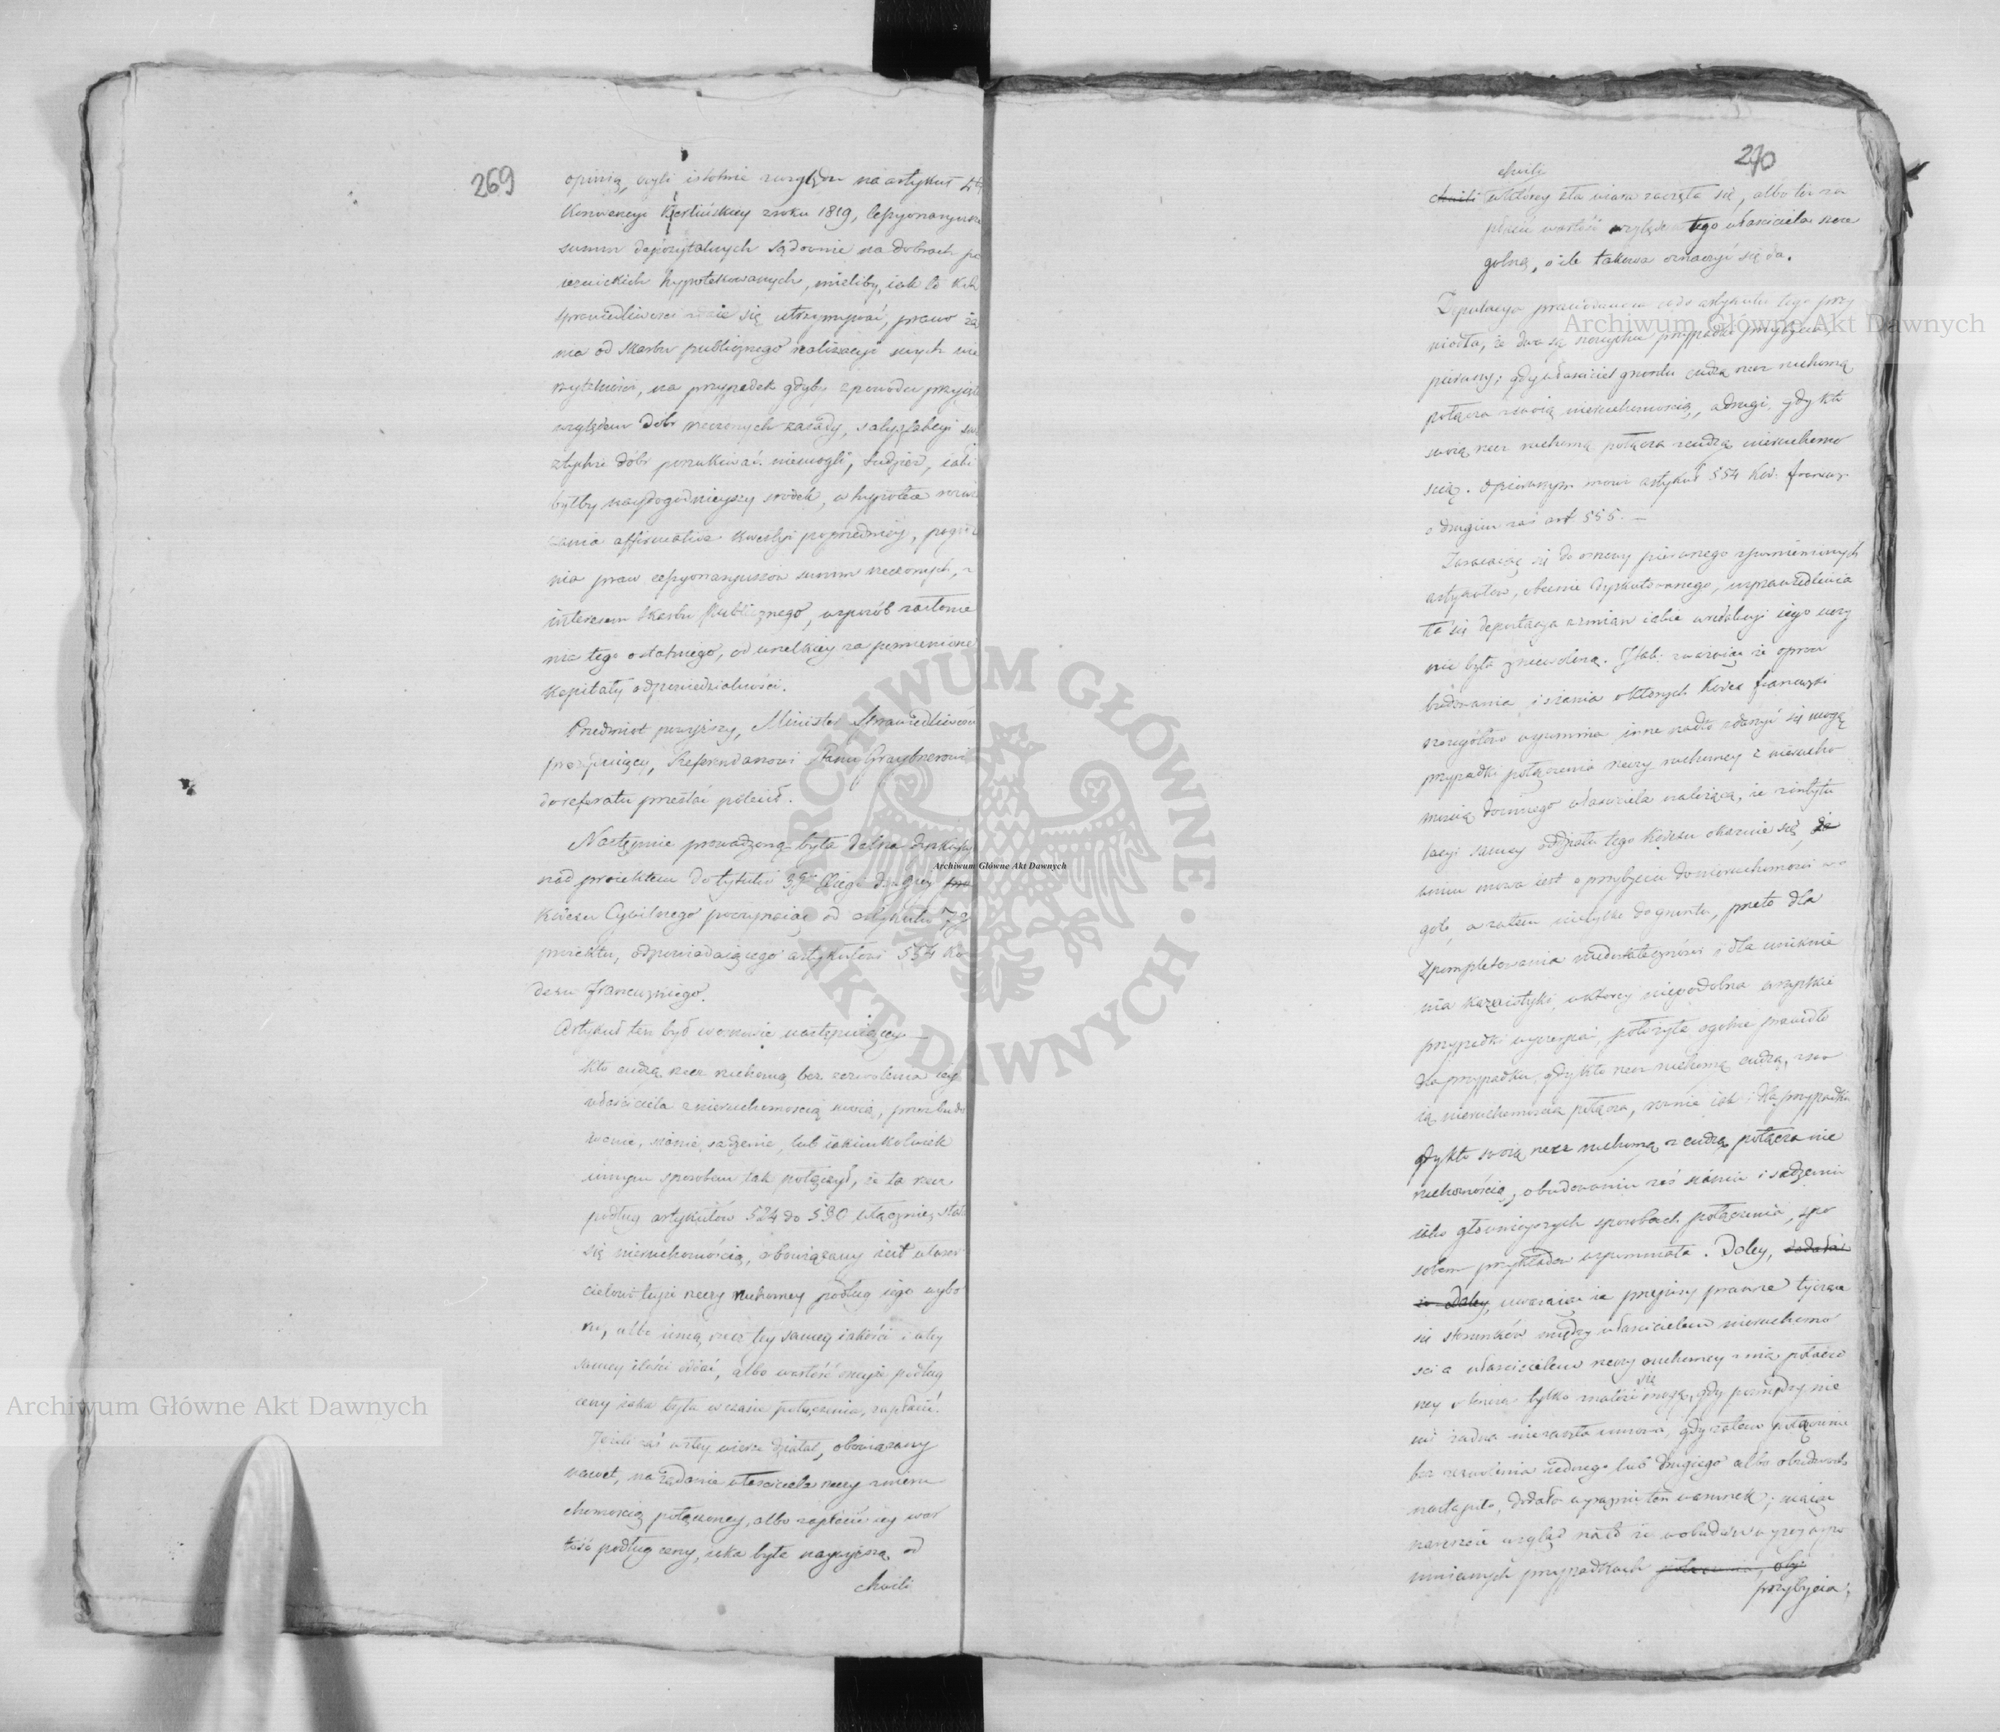 269
opinią, czyli istotnie względu na artykuł 4ty
Konwencyi Berlińskiey z roku 1819, cessyonaryusze
summ depozytalnych sądownie na dobrach
hypotekowanych, mieliby, iak to
sprawiedliwości zdaie się utrzymywać, prawo żą
nia od Skarbu publicznego realizacyi swych wie
rzytelności, na przypadek gdyby z powodu przyjętey
względem dóbr rzeczonych zasady, satysfakcyi
z tychże dóbr poszukiwać niemogli, tudzież, iaki
byłby naydogodnieyszy srodek, w hypotezie
affirmative kwestyi poprzedniéy,
nia praw cessyonaryuszów summ rzeczonych, z
interesem Skarbu Publicznego, w sposób zasłonie
nia tego ostatniego, od wszelkiey za pomienione
kapitały odpowiedzialności.
Przedmiot powyższy, Minister Sprawiedliwości
prezyduiący, Referendarzowi Stanu Graybnerowi
do referatu przesłać polecił.
Następnie prowadzoną była dalsza dyskussya
nad proiektem do tytułu 3go Xięgi drugiey
Kodexu Cywilnego poczynaiąc od artykułu 79
proiektu, odpowiadaiącego artykułowi 554 Ko
dexu francuzkiego.
Artykuł ten był w osnowie następuiącey —
Kto cudzą rzecz ruchomą bez zezwolenia iey
właściciela z nieruchomością swoią, przez budo
wanie, sianie, sadzenie, lub iakimkolwiek
innym sposobem tak połączył, że ta rzecz
podług artykułów 524 do 530 włącznie, stała
się nieruchomością, obowiązany iest właści
cielowi teyże rzeczy ruchomey podług iego wybo
ru, albo inną rzecz tey samey iakości i tey
samey ilości oddać, albo wartość oneyże podług
ceny iaka była w czasie połączenia, zapłacić.
Jeżeli zaś w złey wierze działał, obowiązany
nawet, na żądanie właściciela rzeczy z nieru
chomością połączoney, albo zapłacić iey war
tość podług ceny, iaka była naywyższą od
chwili
270
chwili
chwili w którey zła wiara zaczęła się, albo też za
płacić wartość względem tego właściciela szcze
gólną, o ile takowa oznaczyć się da.
Deputacya prawodawcza co do artykułu tego przy
niosła, że dwa są rodzaje przypadków przybycia,
pierwszy; gdy właściciel gruntu cudzą rzecz ruchomą
połącza z swoią nieruchomością, a drugi, gdy kto
swoią rzecz ruchomą połącza z cudzą nieruchomo
scią. O pierwszym mowi artykuł 554 Kod. francuz.
o drugim zaś art 555. —
Zwracaiąc się do osnowy pierwszego z pomienionych
artykułów, obecnie dyskutowanego, usprawiedliwia
ła się deputacya z zmian iakie w redakcyi iego uczy
nić była zniewoloną. I tak: zważaiąc że oprócz
budowania i siania o których Kodex francuzki
szczegółowo wspomina, inne nadto zdarzyć się mogą
przypadki połączenia rzeczy ruchomey z nierucho
mością do innego właściciela należącą, że z intytu
lacyi samey oddziału tego Kodexu okazuie się, że
w nim mowa iest o przybyciu do nieruchomości w o
góle, a zatem nietylko do gruntu, przeto dla
skompletowania niedostateczności i dla uniknie
nia kazuistyki, w którey niepodobna wszystkie
przypadki wyczerpać, położyła ogólne prawidło
dla przypadku, gdy kto rzecz ruchomą cudzą, z swo
ią nieruchomością połącza, równie iak i dla przypadku
gdy kto swoią rzecz ruchomą z cudzą połącza nie
ruchomością, o budowaniu zaś sianiu i sadzeniu
iako głównieyszych sposobach połączenia, spo
sobem przykładów wspomniała. Daley, dodała
że Daley, uważaiąc że przepisy prawne tyczące
się stosunków między właścicielem nieruchomo
ści a właścicielem rzeczy ruchomey z nią połączo
ney wtenczas tylko znaleść się mogą, gdy pomiędzy nie
mi żadna niezaszła umowa, gdy zatem połączenie
bez zezwolenia iednego lub drugiego albo obudwóch
nastąpiło, dodała wyraźnie ten warunek; maiąc
nareszcie wzgląd na to że w obudwu wyżey wspo
mnianych przypadkach
przybycia;
Archiwum Główne Akt Dawnych
Archiwum Główne Akt Dawnych
Archiwum Główne Akt Dawnych
ARCHIWUM GŁÓWNE · AKT DAWNYCH ·